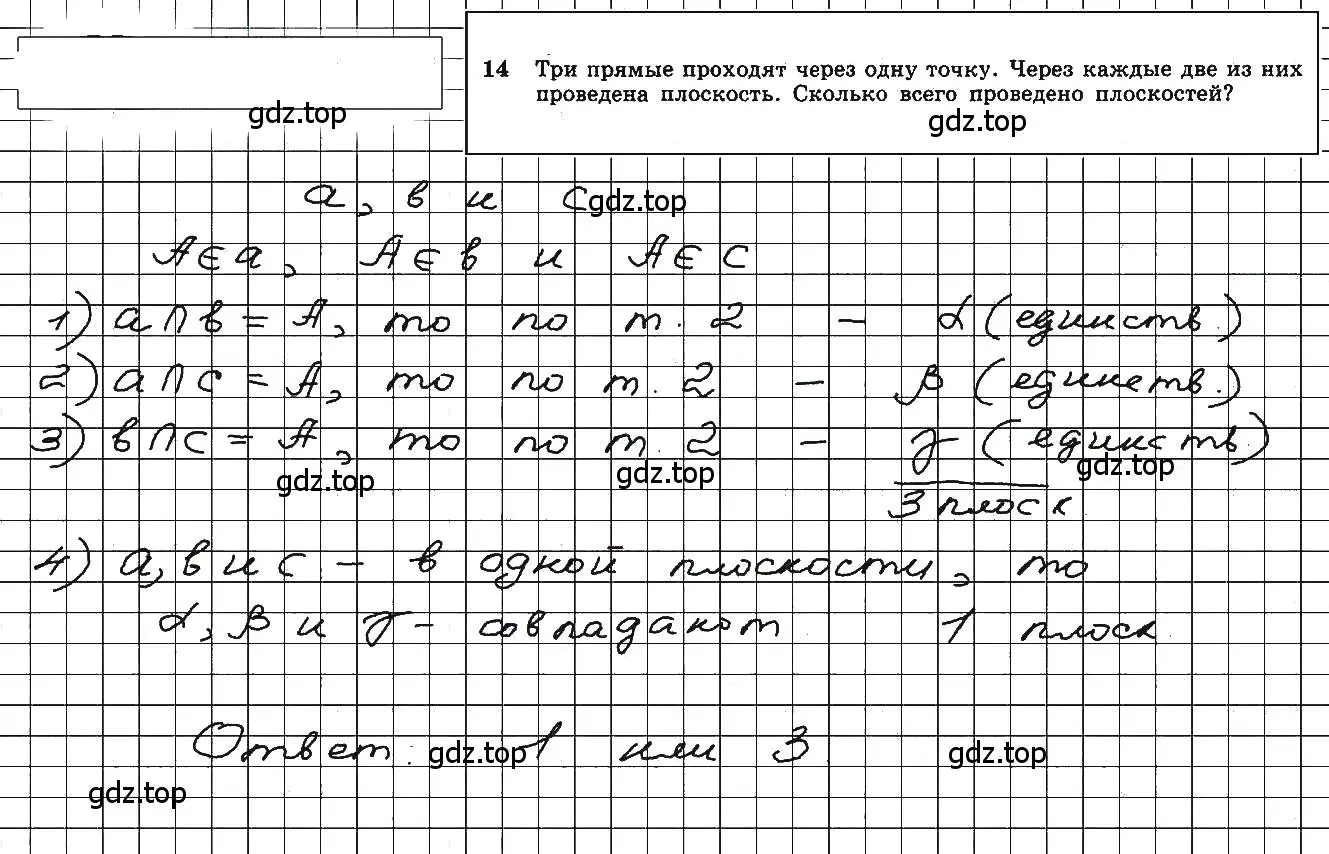 14 Три прямые проходят через одну точку. Через каждые две из них
проведена плоскость. Сколько всего проведено плоскостей?
gdz.top
gdz.top
а, в и с
gdz.top
A∈a, A∈в и A∈c
1) a∩в = A, то по т. 2 – α (единств.)
2) a∩c = A, то по т. 2 – β (единств.)
3) в∩c = A, то по т. 2 – γ (единств.)
gdz.top
gdz.top
gdz.top
3 плоск
4) а, в и с – в одной плоскости, то
α, β и γ – совпадают 1 плоск
Ответ: 1 или 3
gdz.top
gdz.top
gdz.top